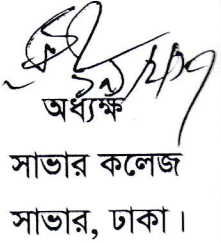 অধ্যক্ষ
সাভার কলেজ
সাভার, ঢাকা।